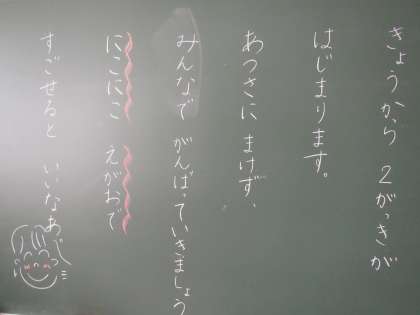 きょうから 2がっきが
はじまります。
あつさに まけず、
みんなで がんばっていきましょう
にこにこ えがおで
すごせると いいなあ。